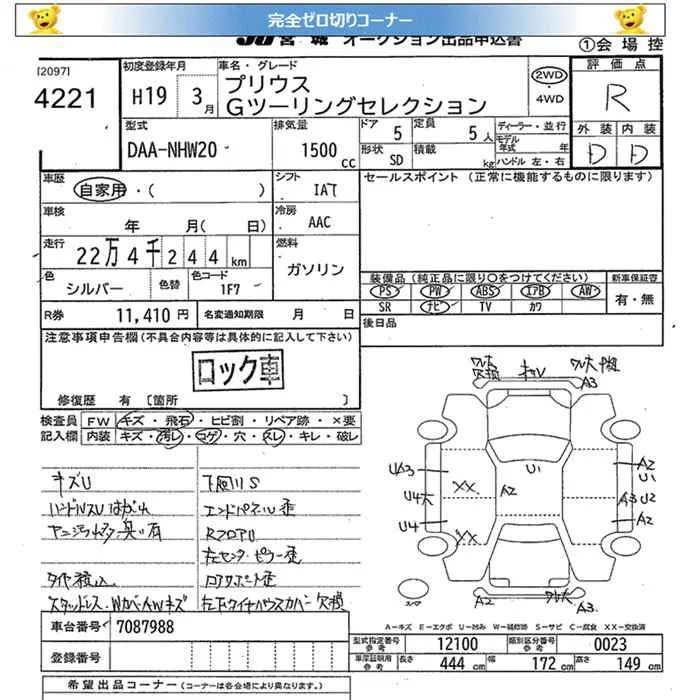 完全ゼロ切りコーナー
JU 宮城 オークション出品申込書
①会場控
[2097]
4221
初度登録年月
H19 3月
車名・グレード
プリウス
Gツーリングセレクション
2WD
・4WD
評価点
R
型式
DAA-NHW20
排気量
1500cc
ドア 5
定員 5人
形状 SD
積載 kg
ディーラー・並行
モデル年式 年
ハンドル 左・右
外装 内装
D D
車歴
自家用・( )
シフト
IAT
セールスポイント (正常に機能するものに限ります)
車検
年 月( 日)
冷房
AAC
走行
22万4千244km
燃料
ガソリン
色
シルバー
色替
色コード
1F7
装備品(純正品に限り○をつけてください)
PS PW ABS エアB AW
SR ナビ TV カワ
新車保証書
有・無
R券 11,410円
名変通知期限 月 日
後日品
注意事項申告欄(不具合内容等は具体的に記入して下さい)
ロック車
修復歴 有〔箇所 〕
検査員記入欄
FW キズ・飛石・ヒビ割・リペア跡・×要
内装 キズ・汚レ・コゲ・穴・スレ・キレ・破レ
キズU
ハンドルスレはがれ
下廻りS
エンドパネル歪
RフロアU
タイヤ積込
スタッドレス・Wカバー・AWキズ
左下タイヤハウスカバー欠損
A3
A3
U1
UA3
U4
U4
XX
XX
A2
A2
U1
A3 U2
A2
A2
A3
スペア
A=キズ E=エクボ U=凹み W=補修跡 S=サビ C=腐食 XX=交換済
車台番号 7087988
登録番号
型式指定番号 12100
類別区分番号 0023
車庫証明用参考
長さ 444cm
幅 172cm
高さ 149cm
希望出品コーナー(コーナーは各会場により異なります。)